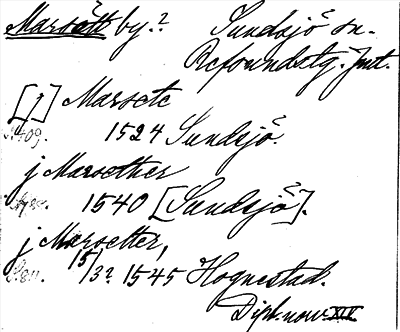 Marsätt by.? Sundsjö sn.
Refsundstg. Jmt.
[j] Marsete
1524 Sundsjö.
j Marsether
1540 [Sundsjö].
j Marsetter,
15/3? 1545 Hognestad.
Dipl. norv. XIV.